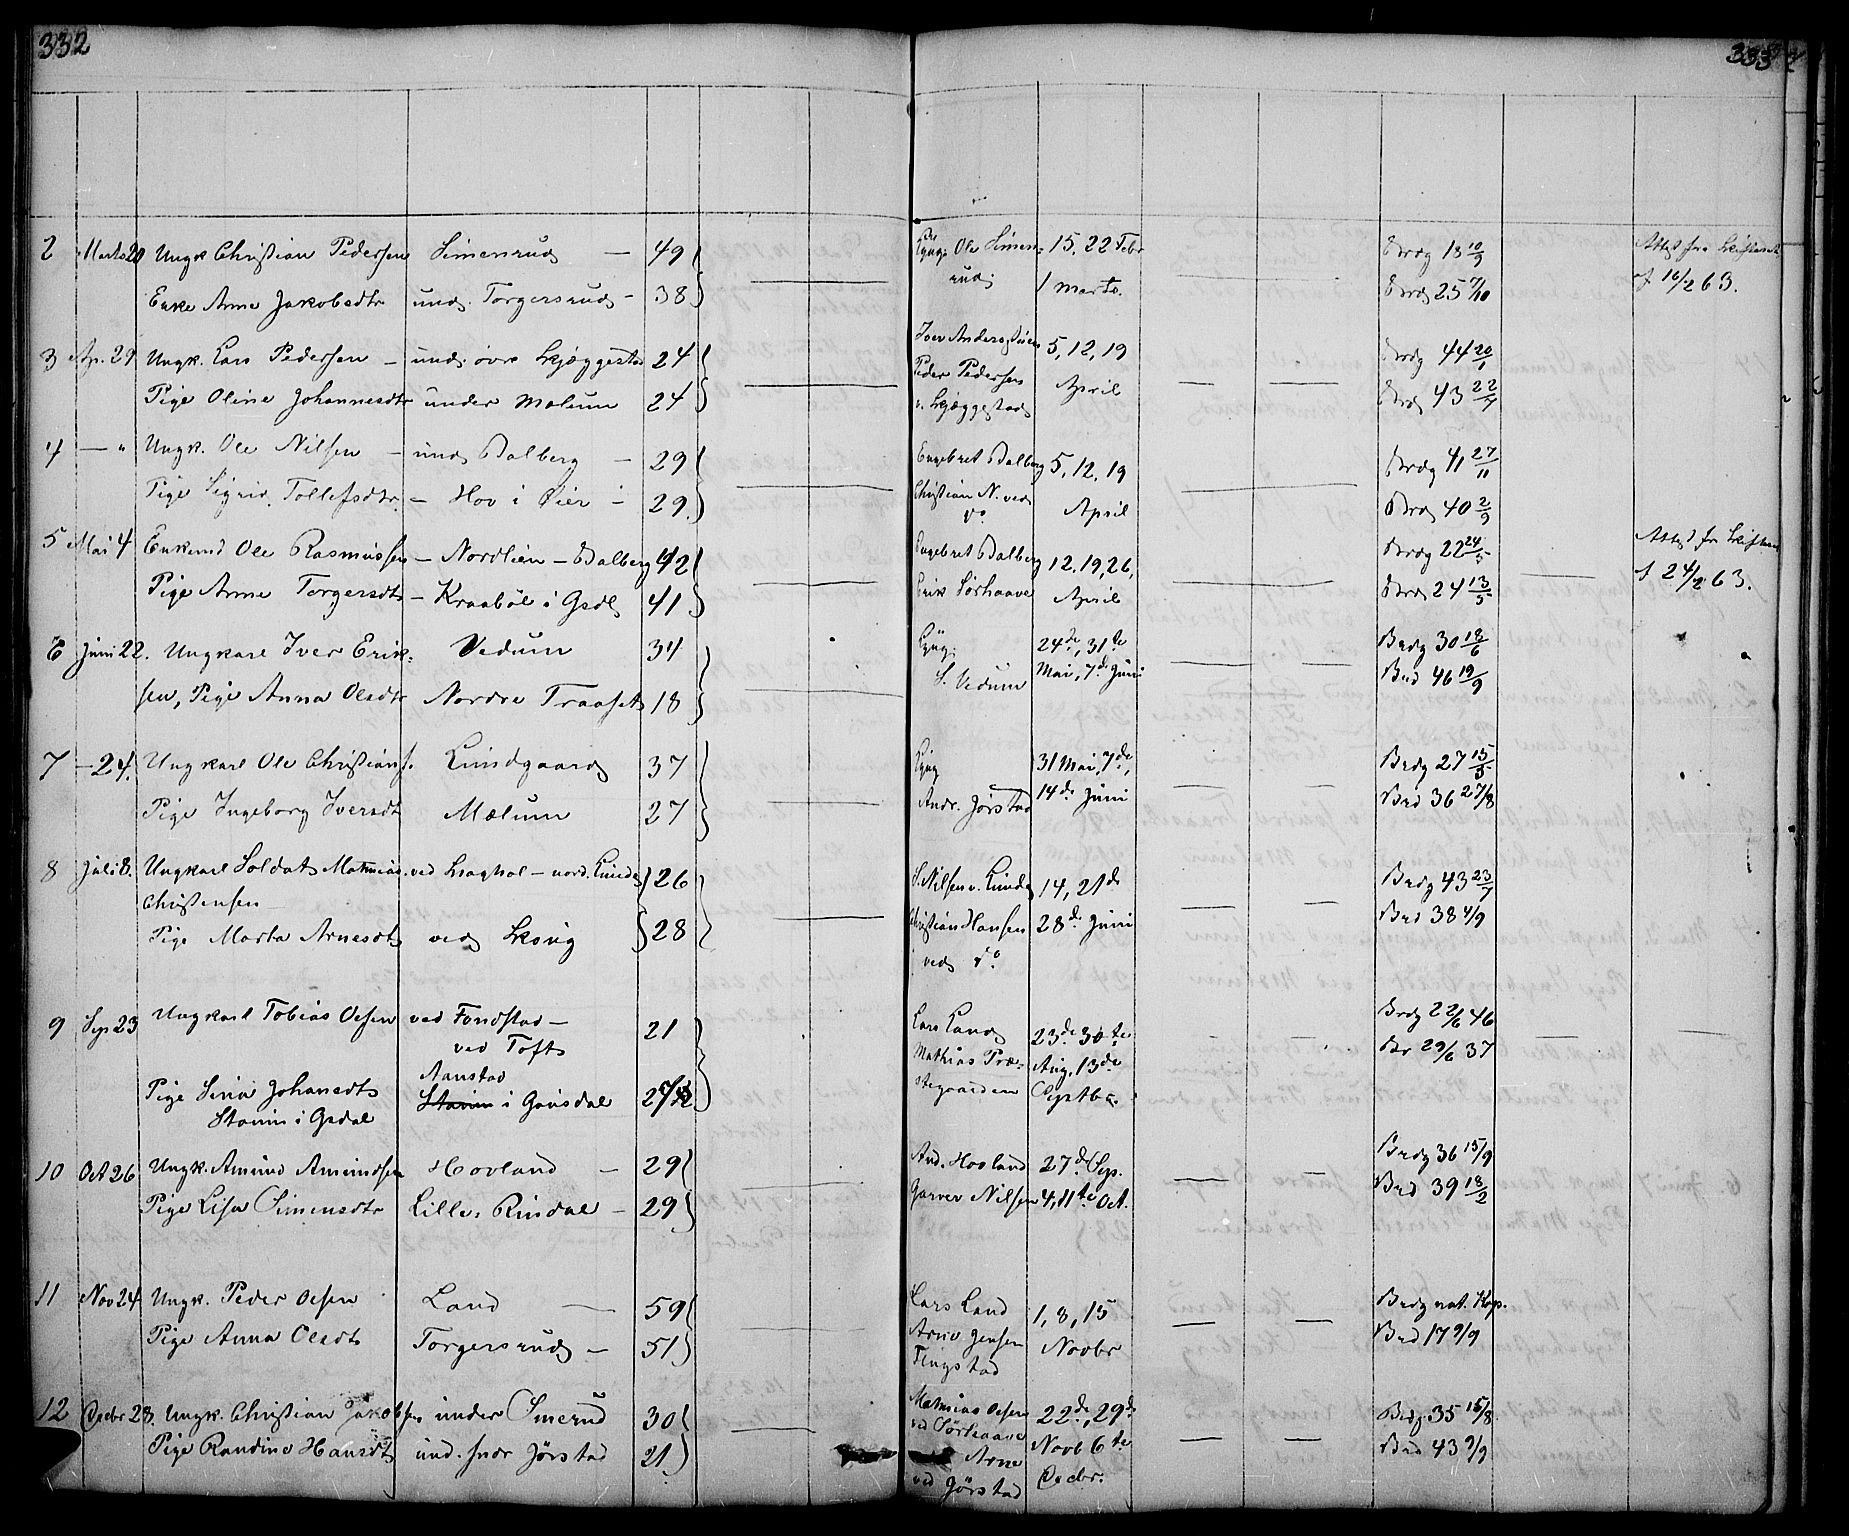 332
333
2 Marts 20 Ungk Christian Pedersen Simenrud — 49 Ole Simen- 15, 22 Febr Brdg 13 10/9 Attest fra Skifteret
Enke Anne Jakobsdtr und. Torgersrud - 38 rud 1 Marts. Brd 25 7/10 af 16/2 63.
3 Ap. 29 Ungk. Lars Pedersen — und. övre Skjæggestad 24 Iver Anders 5, 12, 19 Brdg 44 20/1
Pige Oline Johannesdtr under Mælum 24 Peder Pedersen April Brd 43 22/7
v. Skjæggestad
4 — " Ungk. Ole Nilsen — und Dalberg — 29 Engebret Dalberg 5, 12, 19 Brdg 41 27/11
Pige Sigrid Tollefsdtr. — Hov i Öier — 29 Christian N. ved April Brd 40 2/9
do
5 Mai 4 Enkemd Ole Rasmussen — Nordlien — Dalberg 42 Engebret Dalberg 12, 19, 26, Brdg 22 24/5 Attest fr Skifteret
Pige Anne Torgersdtr — Kraaböl i Gsdl 41 Erik Sörhaave April Brd 24 13/5 af 24/2 63.
6 Juni 22. Ungkarl Iver Erik- Vedum 34 24de, 31te Brdg 30 18/6
sen, Pige Anna Olsdtr Nordre Traaset 18 S. Vedum Mai, 7de Juni Brd 46 19/9
7 — 24. Ungkarl Ole Christians. Lundgaard 37 31 Mai, 7de, Brdg 27 15/5
Pige Ingeborg Iversdtr Mælum 27 Andr. Jörstad 14de Juni Brd 36 27/8
8 Juli 8. Ungkarl Soldat Mathias ved — nord. Lunde 26 S. Nilsen v. Lunde 14, 21de Brdg 43 23/7
Christensen
Pige Marta Arnesdtr ved Skoug 28 Christian Hansen 28de Juni Brd 38 4/9
ved do
9 Sep 23 Ungkarl Tobias Olsen ved Fondstad — 21 Lars Land 23de 30te Brdg 22/6 46
ved Toft Mathias Præ- Aug, 13de Br 29/6 37
Aanstad
Pige Sina Johansdtr Stavum i Gausdal stegaarden Septbr.
Stavum i Gsdal
10 Oct 26 Ungk. Amund Amundsen Hovland — 29 And. Hovland 27de Sep. Brdg 36 15/9
Pige Lisa Simensdtr Lille Rindal — 29 Garver Nilsen 4, 11te Oct. Brd 39 18/2
11 Nov 24 Ungk. Peder Olsen Land — 59 Lars Land 1, 8, 15 Brdg nat. Kop.
Pige Anna Olsdtr Torgersrud — 51 Arne Jensen Novbr Brd 17 9/9
Tingstad
12 Decbr 28. Ungk. Christian Jakobsen under Smerud 30 Mathias Olsen 22de, 29de Brdg. 35 15/8
ved Sörhaave
Pige Randine Hansdtr und. Jörstad 21 Arne Novb 6te Brd 43 9/9
ved Jörstad Decbr.